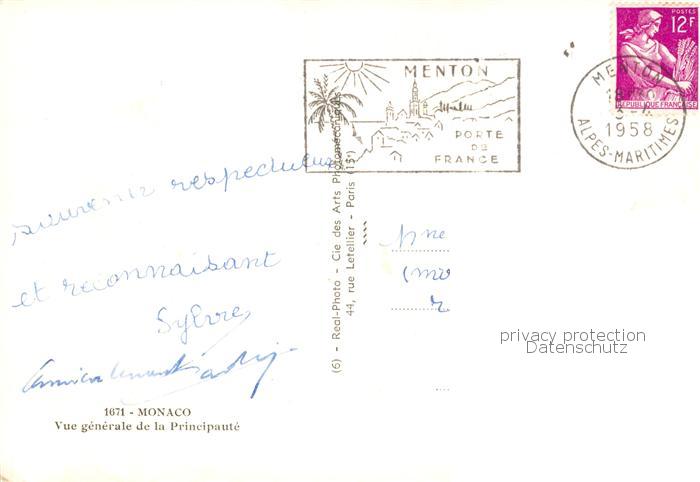 POSTES
12F
REPUBLIQUE FRANÇAISE
MENTON
PORTE
DE
FRANCE
MENTON
1958
ALPES-MARITIMES
souvenir respectueux
et reconnaissant
Sylvre
Mme
(6) - Real-Photo - Cie des Arts Photomécaniques
44, rue Letellier - Paris (15e)
privacy protection
Datenschutz
1671 - MONACO
Vue générale de la Principauté